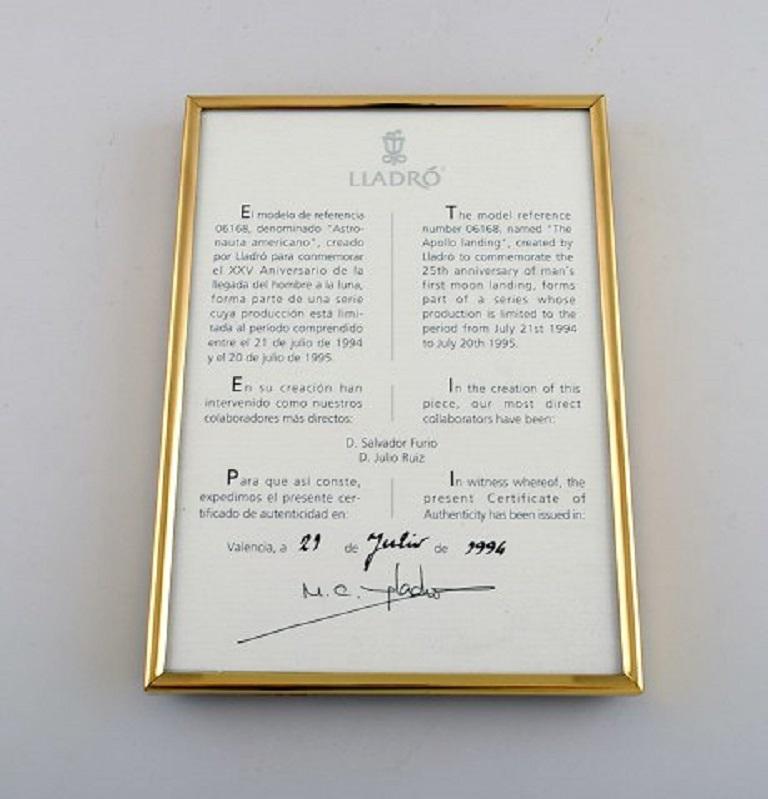 LLADRÓ
El modelo de referencia
06168, denominado "Astro-
nauta americano", creado
por Lladró para conmemorar
el XXV Aniversario de la
llegada del hombre a la luna,
forma parte de una serie
cuya producción está limi-
tada al período comprendido
entre el 21 de julio de 1994
y el 20 de julio de 1995.
The model reference
number 06168, named "The
Apollo landing", created by
Lladró to commemorate the
25th anniversary of man's
first moon landing, forms
part of a series whose
production is limited to the
period from July 21st 1994
to July 20th 1995.
En su creación han
intervenido como nuestros
colaboradores más directos:
In the creation of this
piece, our most direct
collaborators have been:
D. Salvador Furio
D. Julio Ruiz
Para que así conste,
expedimos el presente cer-
tificado de autenticidad en:
In witness whereof, the
present Certificate of
Authenticity has been issued in:
Valencia, a 21 de Julio de 1994
M. C. Lladro